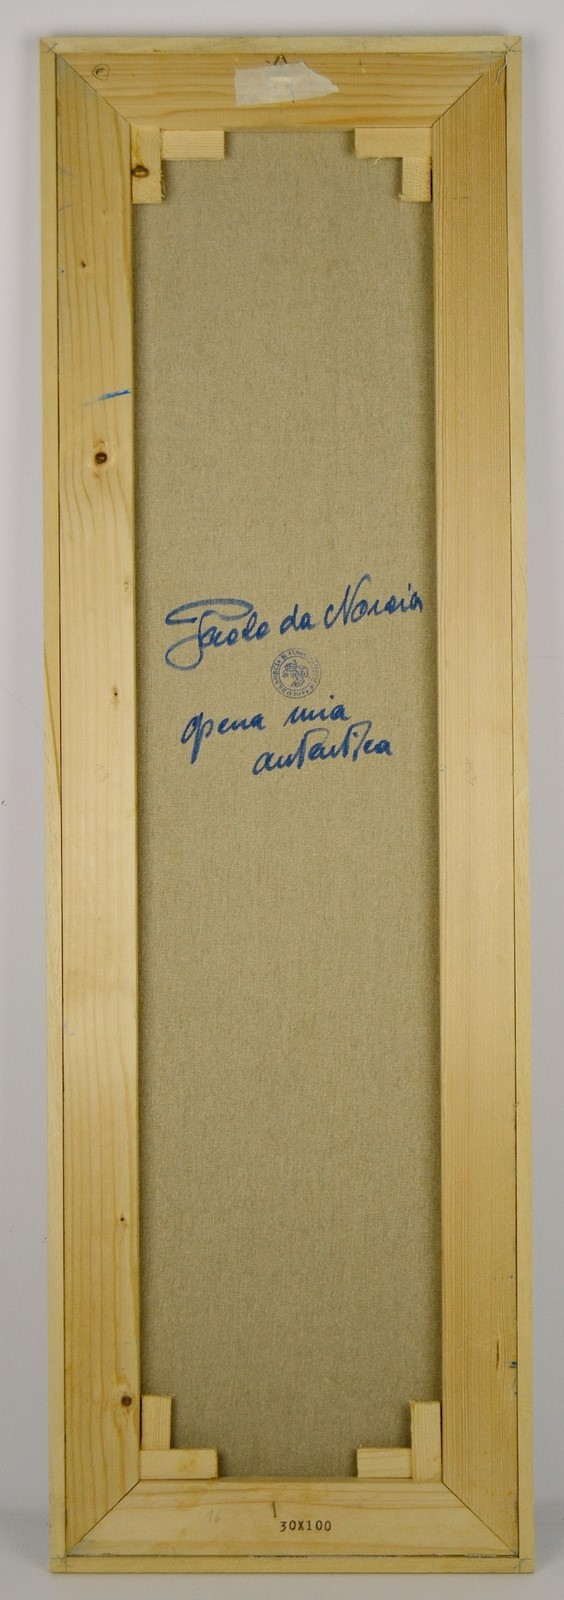 Paolo da Norcia
opera mia
autentica
30X100